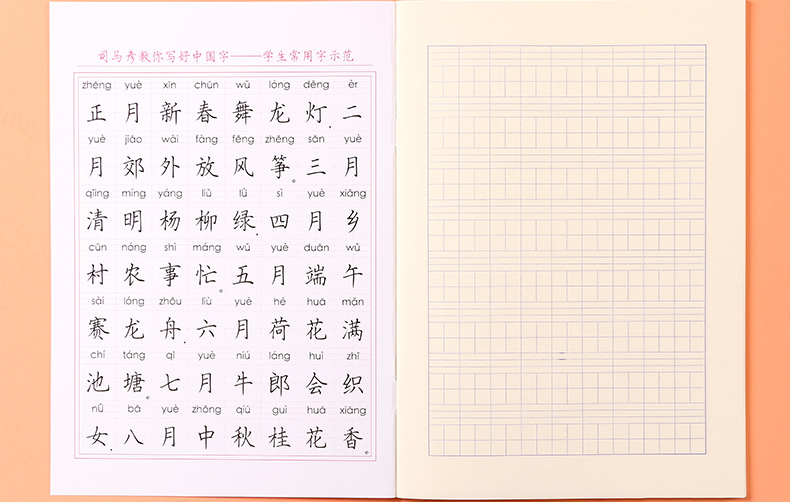 司马彦教你写好中国字——学生常用字示范
zhēng yuè xīn chūn wǔ lóng dēng èr
正月新春舞龙灯,二
yuè jiāo wài fàng fēng zhēng sān yuè
月郊外放风筝。三月
qīng míng yáng liǔ lǜ sì yuè xiāng
清明杨柳绿,四月乡
cūn nóng shì máng wǔ yuè duān wǔ
村农事忙。五月端午
sài lóng zhōu liù yuè hé huā mǎn
赛龙舟,六月荷花满
chí táng qī yuè niú láng huì zhī
池塘。七月牛郎会织
nǚ bā yuè zhōng qiū guì huā xiāng
女,八月中秋桂花香。